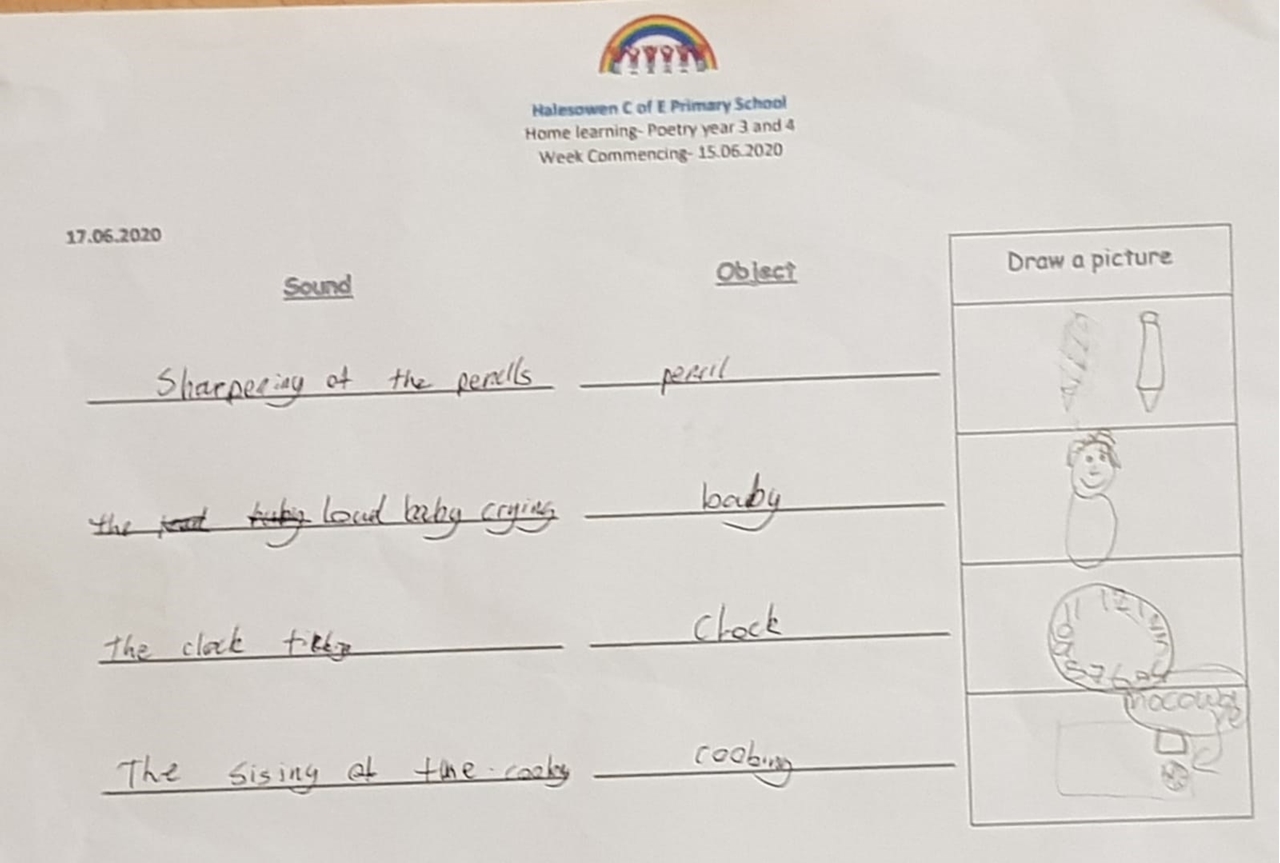 Halesowen C of E Primary School
Home learning- Poetry year 3 and 4
Week Commencing- 15.06.2020
17.06.2020
Sound Object Draw a picture
Sharpening of the pencils pencil
the loud baby crying baby
the clock Clock
11 12 1
10
9
8 7 6 5
The sising of the cooking